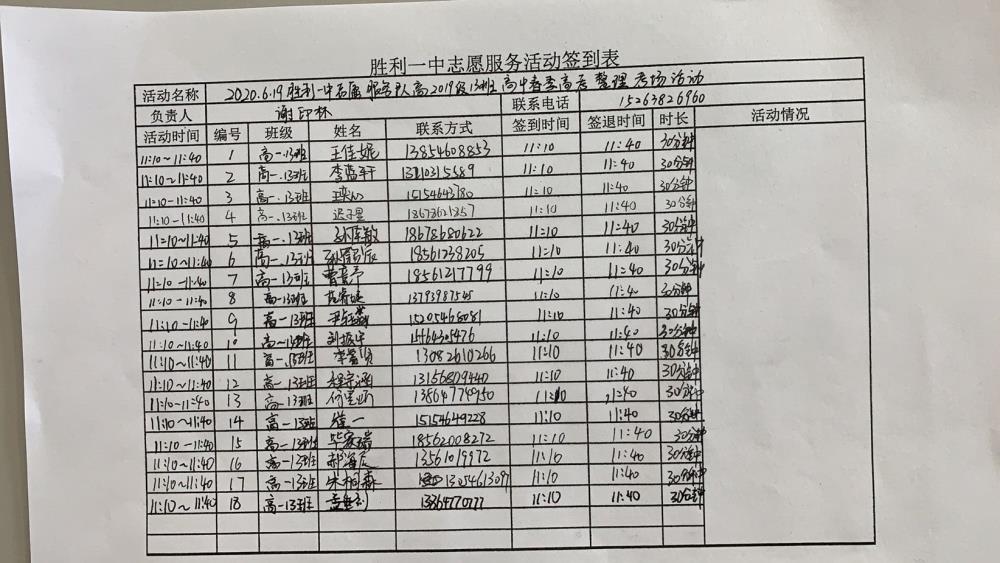 胜利一中志愿服务活动签到表
活动名称 2020.6.19胜利一中志愿服务队高2019级13班 高中春季高考 整理 考场活动
负责人 谢印林 联系电话 15263826960
活动时间 编号 班级 姓名 联系方式 签到时间 签退时间 时长 活动情况
11:10~11:40 1 高一.13班 王佳妮 13854608853 11:10 11:40 30分钟
11:10~11:40 2 高一.13班 李蓝轩 11:10 11:40 30分钟
11:10-11:40 3 高一.13班 15154643780 11:10 11:40 30分钟
11:10-11:40 4 高一.13班 迟子墨 18678621857 11:10 11:40 30分钟
11:10~11:40 5 高一.13班 18678680622 11:10 11:40 30分钟
11:10~11:40 6 高一.13班 18561238205 11:10 11:40 30分钟
11:10-11:40 7 高一13班 18561217799 11:10 11:40 30分钟
11:10-11:40 8 高一13班 13793987545 11:10 11:40 30分钟
11:10-11:40 9 高一13班 15205468081 11:10 11:40 30分钟
11:10~11:40 10 高一13班 刘振宇 11:10 11:40 30分钟
11:10~11:40 11 高一.13班 13082610266 11:10 11:40 30分钟
11:10~11:40 12 高一.13班 程宇涵 13156809440 11:10 11:40 30分钟
11:10-11:40 13 高一13班 11:10 11:40 30分钟
11:10~11:40 14 高一13班 15154649228 11:10 11:40 30分钟
11:10-11:40 15 高一13班 18562008272 11:10 11:40 30分钟
11:10~11:40 16 高一13班 郝海辰 13561019972 11:10 11:40 30分钟
11:10~11:40 17 高一13班 朱桐森 13054613097 11:10 11:40 30分钟
11:10~11:40 18 高一13班 11:10 11:40 30分钟